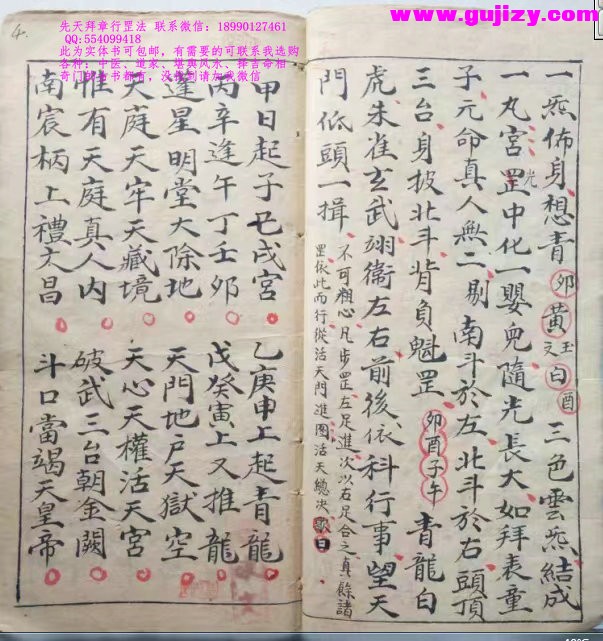 www.gujizy.com
先天拜章行罡法 联系微信：18990127461
QQ:554099418
此为实体书可包邮，有需要的可联系我选购
各种：中医、道家、堪舆风水、择吉命相
奇门的古书都有，没找到请加我微信
一炁佈身想青卯黃玉文白酉三色雲炁結成
一丸宮罡光中化一嬰兒隨光長大如拜表童
子元命真人無二剔南斗於左北斗於右頭頂
三台身披北斗背負魁罡卯酉子午青龍白
虎朱雀玄武翊衞左右前後依科行事望天
門低頭一揖
不可粗心凡步罡左足進次以右足合之真餘諸
罡依此而行從活天門進圖活天總决歌曰
甲日起子七戌宮 乙庚申上起青龍
丙辛逢午丁壬卯 戊癸寅上又推龍
蓬星明堂大除地 天門地戶天獄空
天庭天牢天藏境 天心天權活天宮
惟有天庭真人內 破武三台朝金闕
南宸柄上禮文昌 斗口當竭天皇帝
4